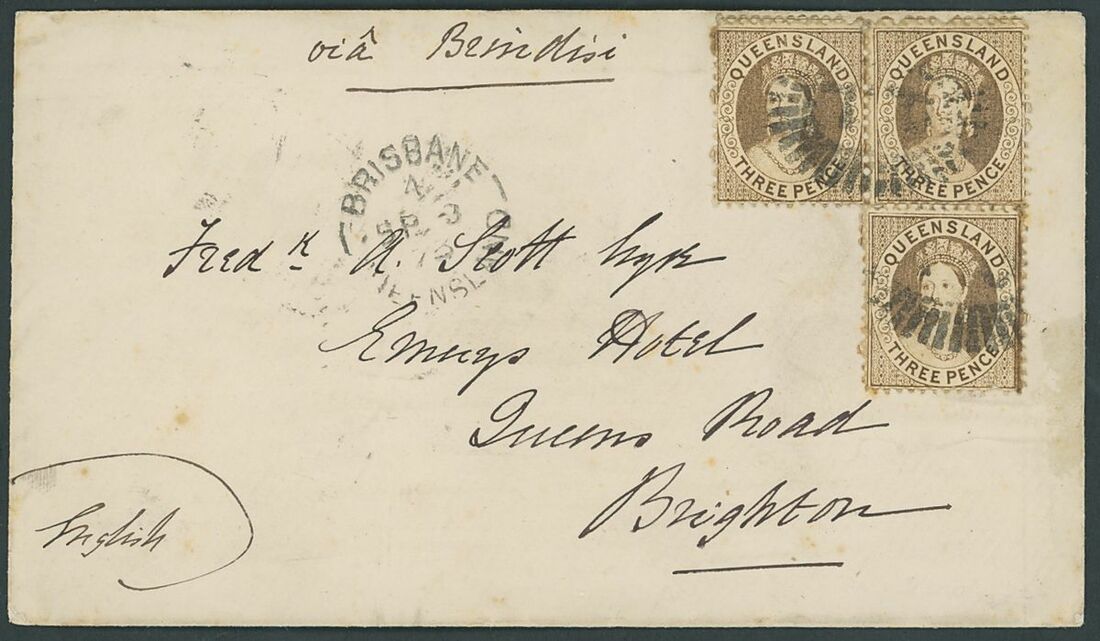 viâ Brindisi
QUEENSLAND
THREE PENCE
QUEENSLAND
THREE PENCE
QUEENSLAND
THREE PENCE
BRISBANE
SP 3
QUEENSLAND
Fredk A. Scott
Hotel
Queens Road
Brighton
English